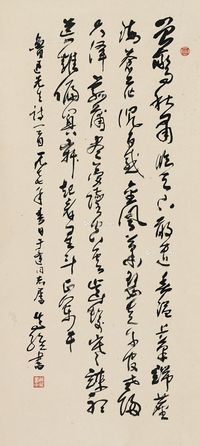 曾驚秋肅臨天下敢遣春溫上筆端塵
海蒼茫沉百感金風蕭瑟走千官老歸
大澤菰蒲盡夢墜空雲齒髮寒竦聽
荒雞偏闃寂起看星斗正闌干
魯迅先生詩一首 年春日 同志屬 書